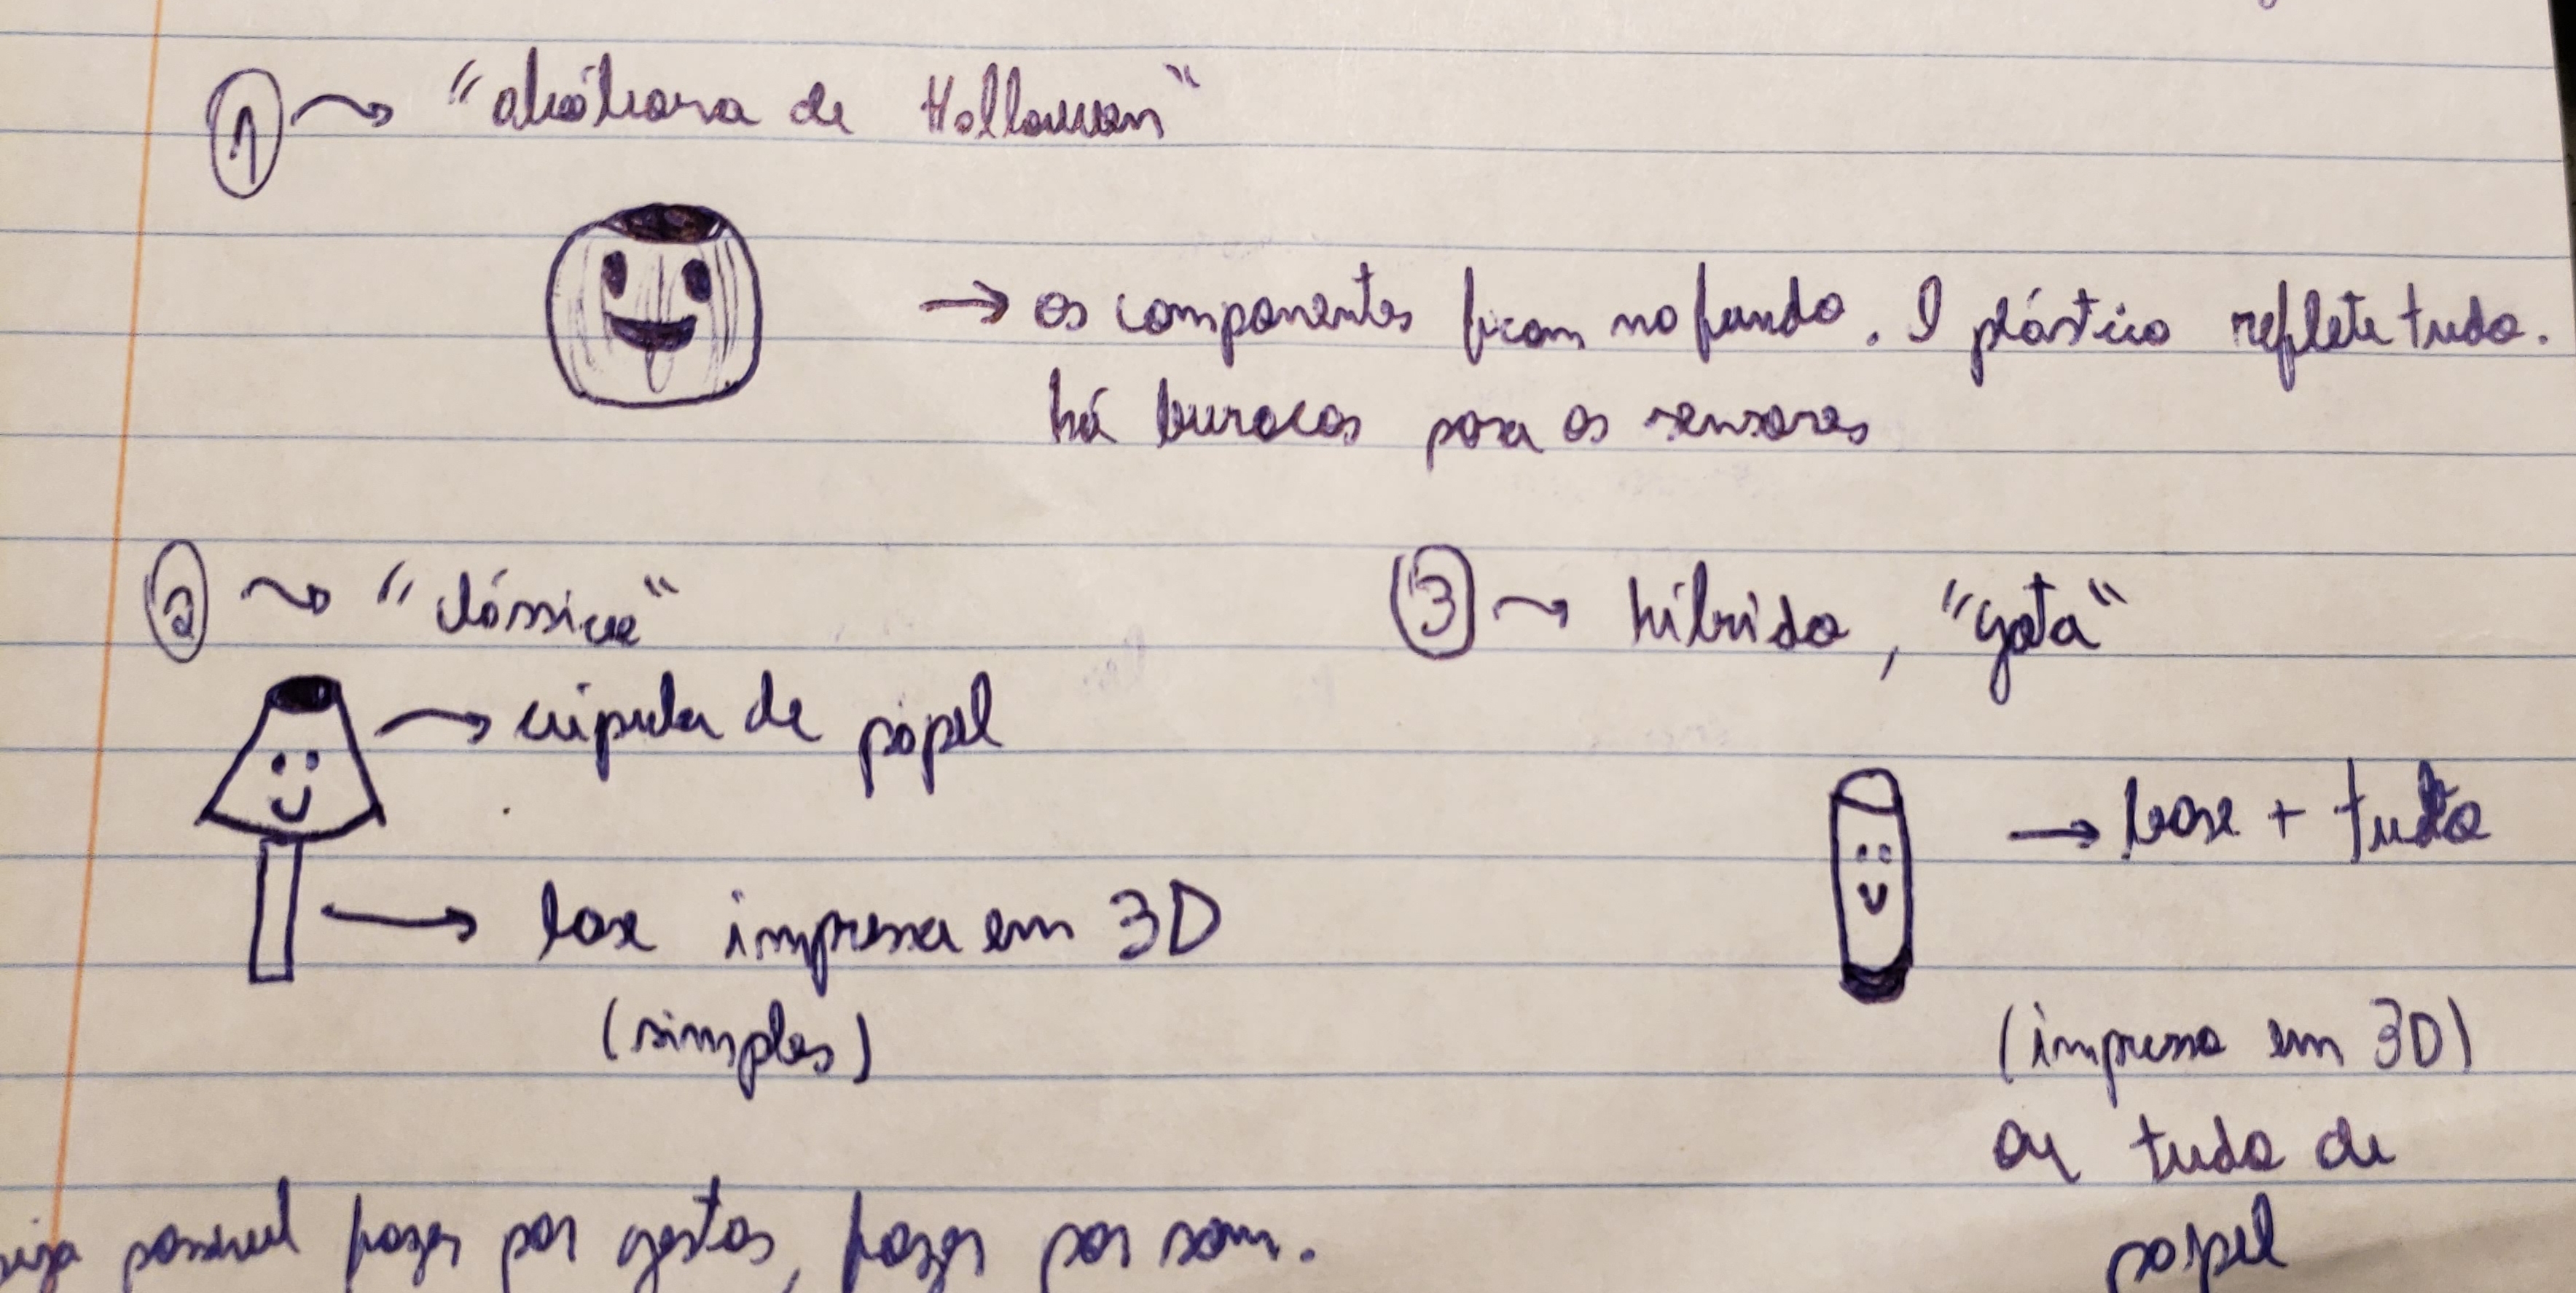 1 "abóbora de Halloween"
os componentes ficam no fundo. O plástico reflete tudo.
há buracos para os sensores
2 "clássica"
cúpula de papel
base impressa em 3D
(simples)
3 híbrido, "gota"
base + tudo
(impressa em 3D)
ou tudo de
papel
seja possível fazer por gestos, fazer por som.